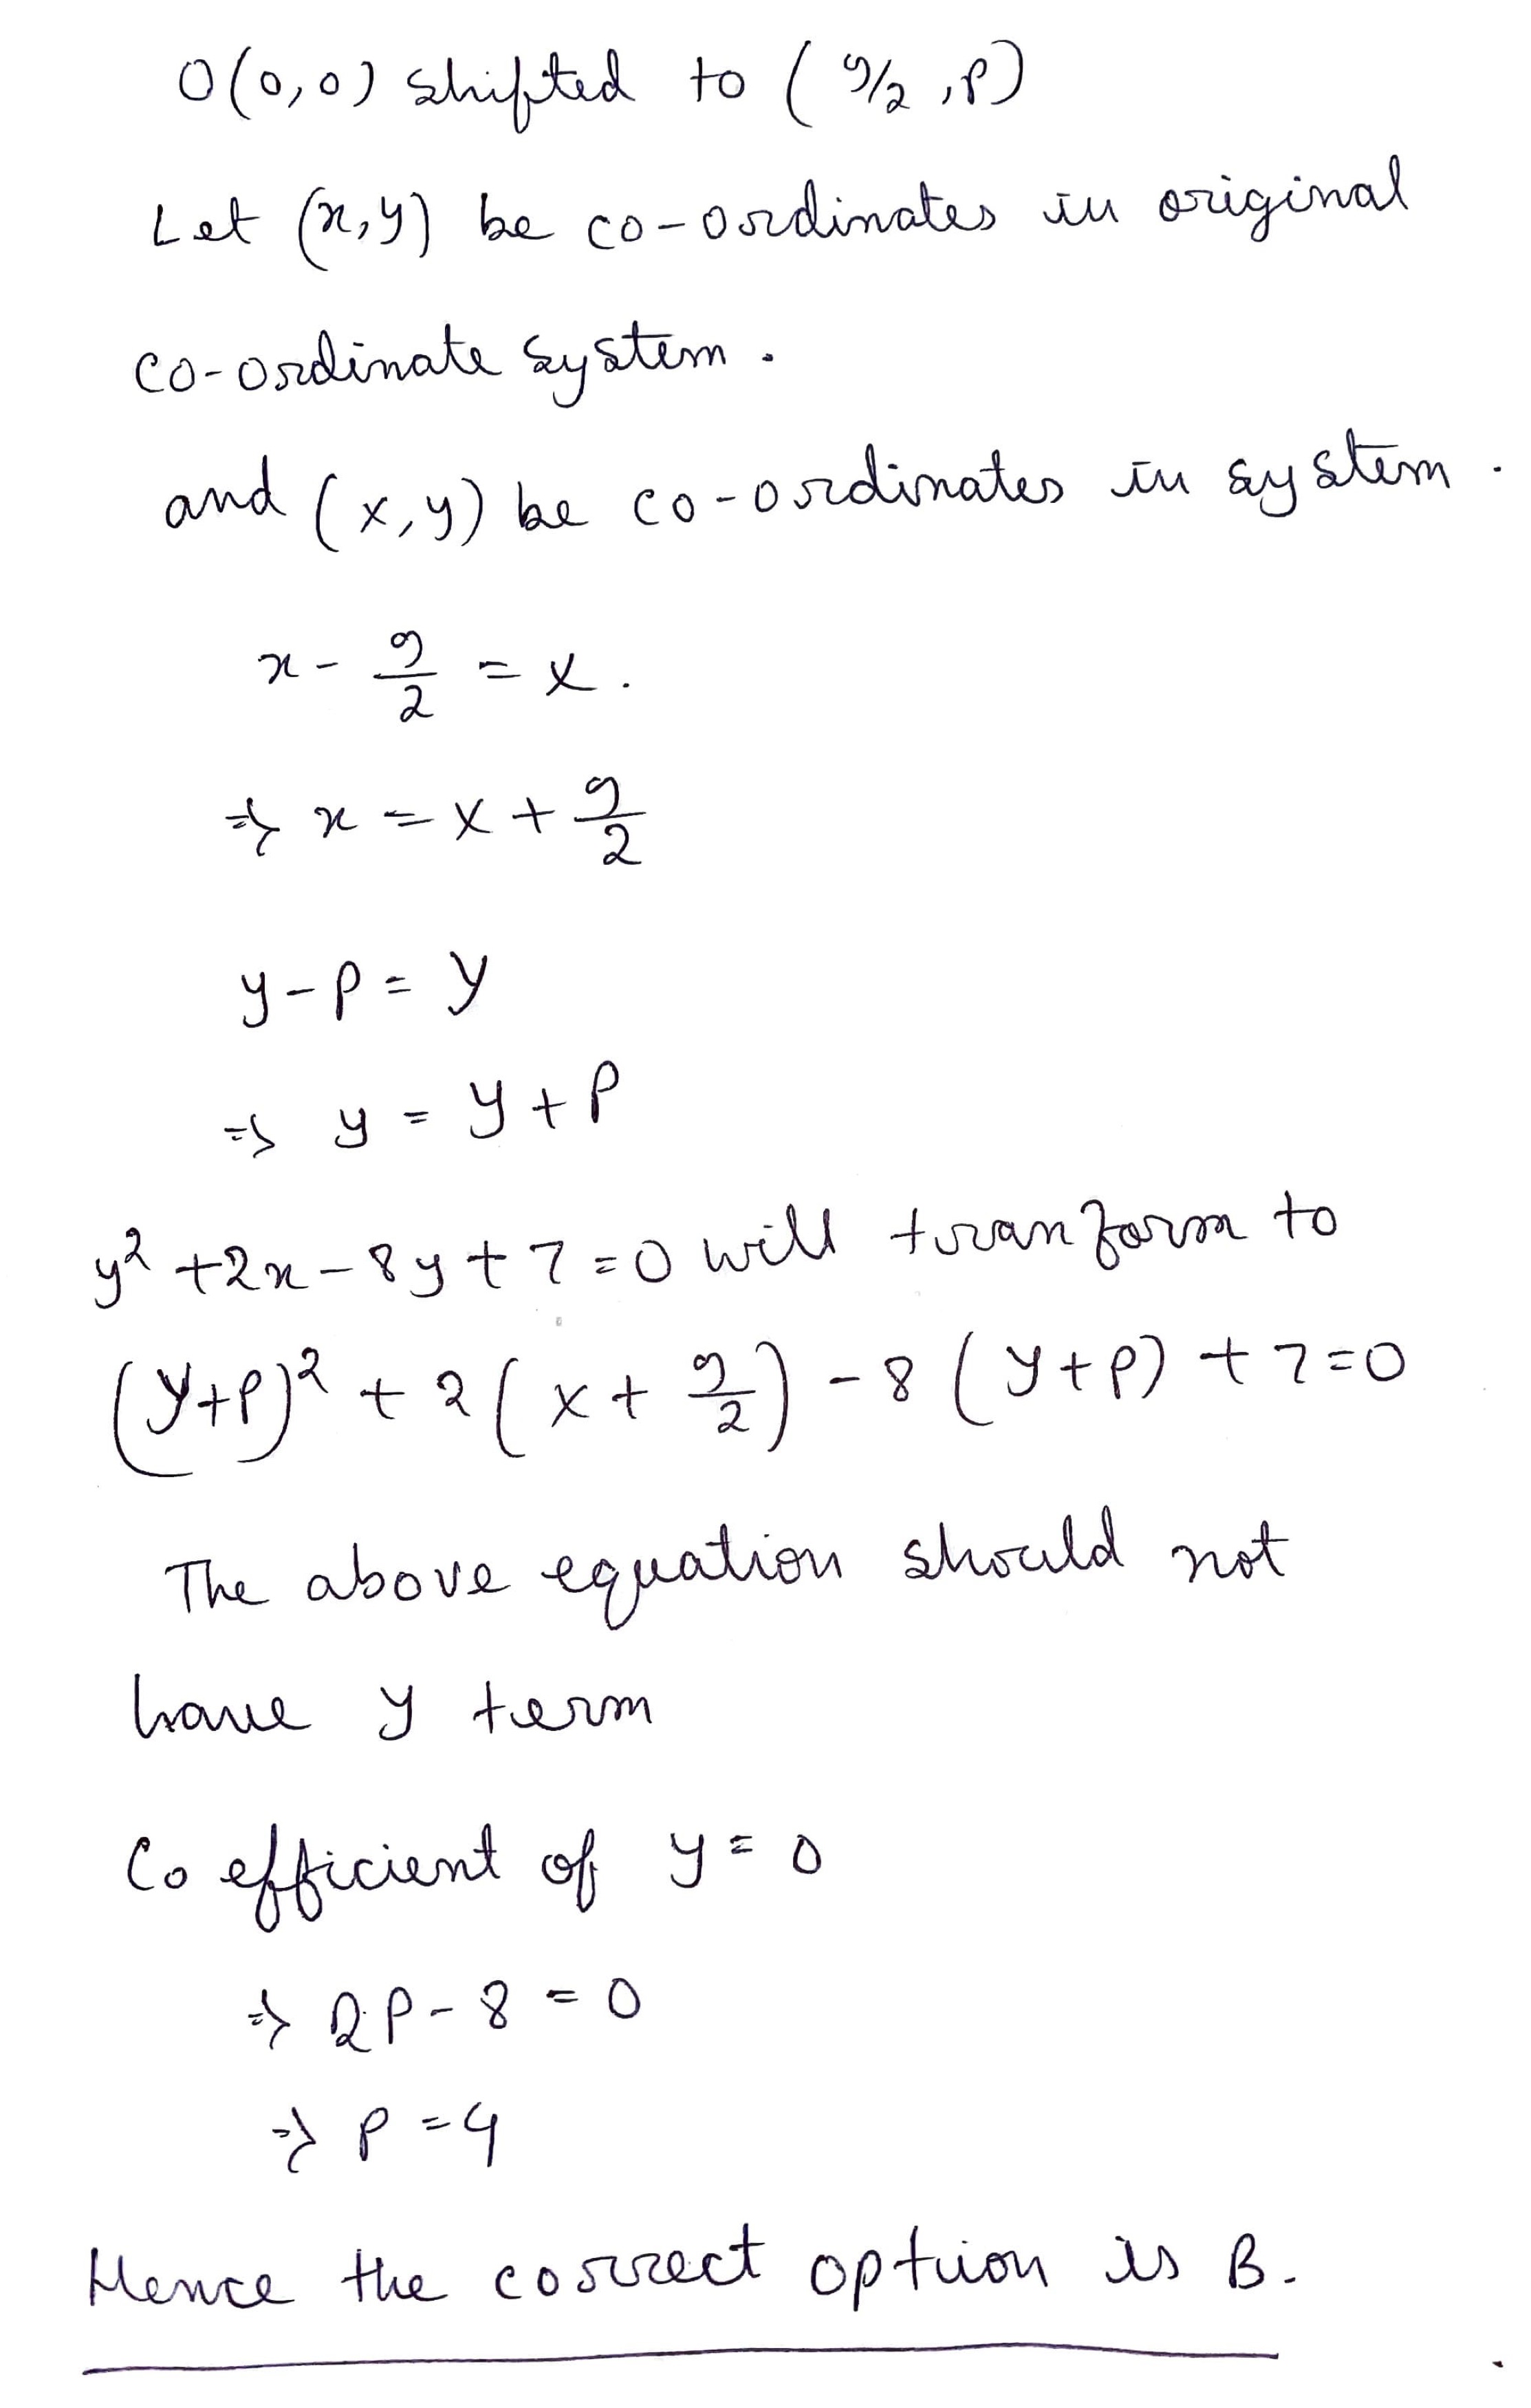 O(0,0) shifted to (9/2, P)
Let (x,y) be co-ordinates in original
co-ordinate system.
and (X,Y) be co-ordinates in system.
x - 9/2 = X.
⇒ x = X + 9/2
y - P = Y
⇒ y = Y + P
y² + 2x - 8y + 7 = 0 will tranform to
(Y+P)² + 2(X + 9/2) - 8(Y+P) + 7 = 0
The above equation should not
have y term
Coefficient of y = 0
⇒ 2P - 8 = 0
⇒ P = 4
Hence the correct option is B.